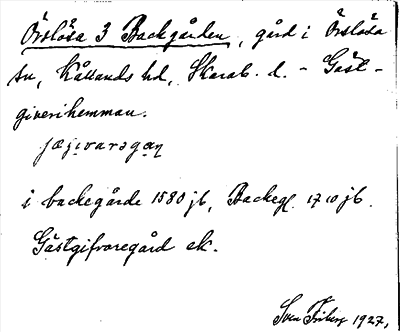 Örslösa 3 Backgården, gård i Örslösa
sn, Kållands hd, Skarab. l. - Gäst-
giverihemman.
jæʃivaregaŋ
i backegårde 1580 jb, Backeg. 1710 jb.
Gästgifvaregård ek.
Sven Friberg 1927.